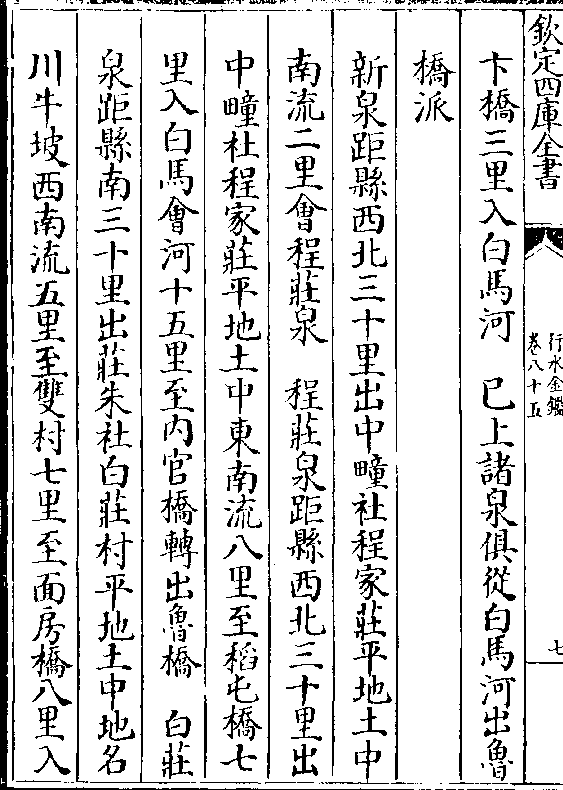 欽定四庫全書
行水金鑑
卷八十五
七
卞橋三里入白馬河　已上諸泉俱從白馬河出魯
橋派
新泉距縣西北三十里出中疃社程家莊平地土中
南流二里會程莊泉　程莊泉距縣西北三十里出
中疃社程家莊平地土中東南流八里至稻屯橋七
里入白馬會河十五里至内官橋轉出魯橋　白莊
泉距縣南三十里出莊朱社白莊村平地土中地名
川牛坡西南流五里至雙村七里至面房橋八里入